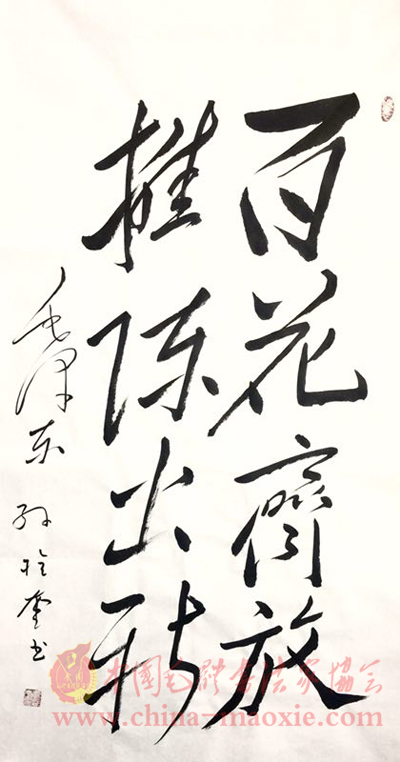 百花齊放
推陈出新
毛泽东
书
中国毛体书法家协会
www.china-maoxie.com